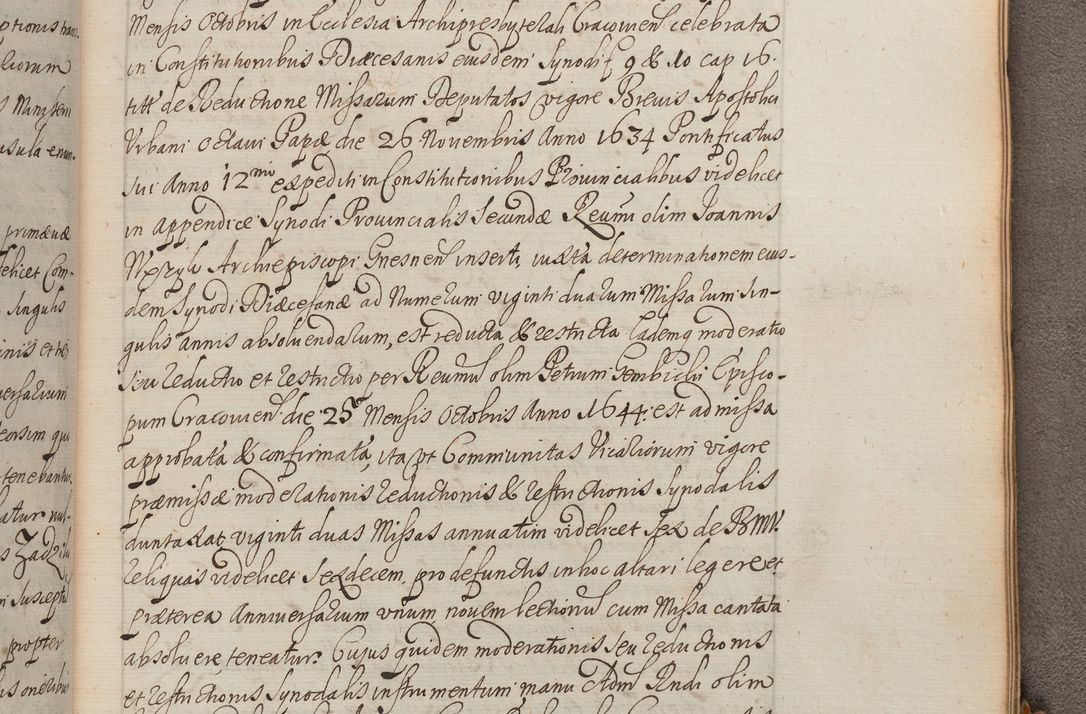 Mensis Octobris in Ecclesia Archipresbyterali Cracovien celebrata
in Constitutionibus Diæcesanis eiusdem Synodi f 9 & 10 cap 16.
titt de Reductione Missarum Deputatos vigore Brevis Apostolici
Urbani octavi Papæ die 26 Novembris Anno 1634 Pontificatus
sui Anno 12mo expediti in Constitutionibus Provincialibus videlicet
in appendice Synodi Provincialis Secundæ Reumi olim Joannis
Wężyk Archiepiscopi Gnesnen inserti, iuxta determinationem eius-
dem Synodi Diæcesanæ ad Numerum viginti duarum Missarum sin-
gulis annis absolvendarum, est reducta & restricta Eademq moderatio
seu reductio et restrictio per Reumum olim Petrum Gembicki Episco-
pum Cracovien die 25 Mensis Octobris Anno 1644. est admissa
approbata & confirmata, ita ut Communitas Vicariorum vigore
præmissæ moderationis reductionis & restrictionis Synodalis
duntaxat viginti duas Missas annuatim videlicet sex de BMV.
reliquas videlicet sexdecem, pro defunctis in hoc altari legere et
præterea Anniversarium unum novem lectionum cum Missa cantata
absolvere teneatur. Cujus quidem moderationis seu reductionis
et restrictionis Synodalis instrumentum manu Adm Rndi olim
ptionis
Mansion
primæva
delicet Com-
singulis
inis et
versarium
eorsim qu
tenebantur
atur nul-
suscepti
propter